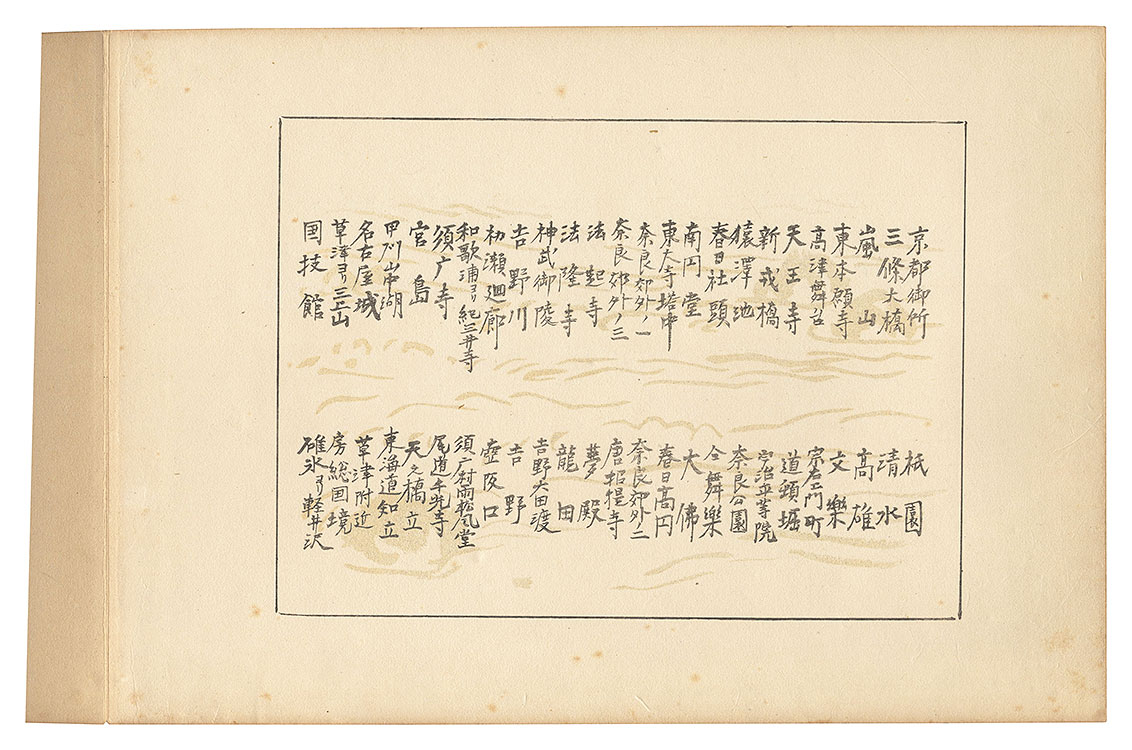 京都御所
三條大橋
嵐山
東本願寺
高津舞台
天王寺
新戎橋
猿澤池
春日社頭
南円堂
東大寺塔中
奈良郊外ノ一
奈良郊外ノ三
法起寺
法隆寺
神武御陵
吉野川
初瀬廻廊
和歌浦ヨリ紀三井寺
須广寺
宮島
甲州山中湖
名古屋城
草津ヨリ三上山
国技館
祇園
清水
高雄
文樂
宗右エ門町
道頓堀
宇治平等院
奈良公園
仝舞樂
大佛
春日高円
奈良郊外二
唐招提寺
夢殿
龍田
吉野六田渡
吉野
壺阪口
須广村雨松風堂
尾道千光寺
天之橋立
東海道知立
草津附近
房総国境
碓氷ヨリ軽井沢